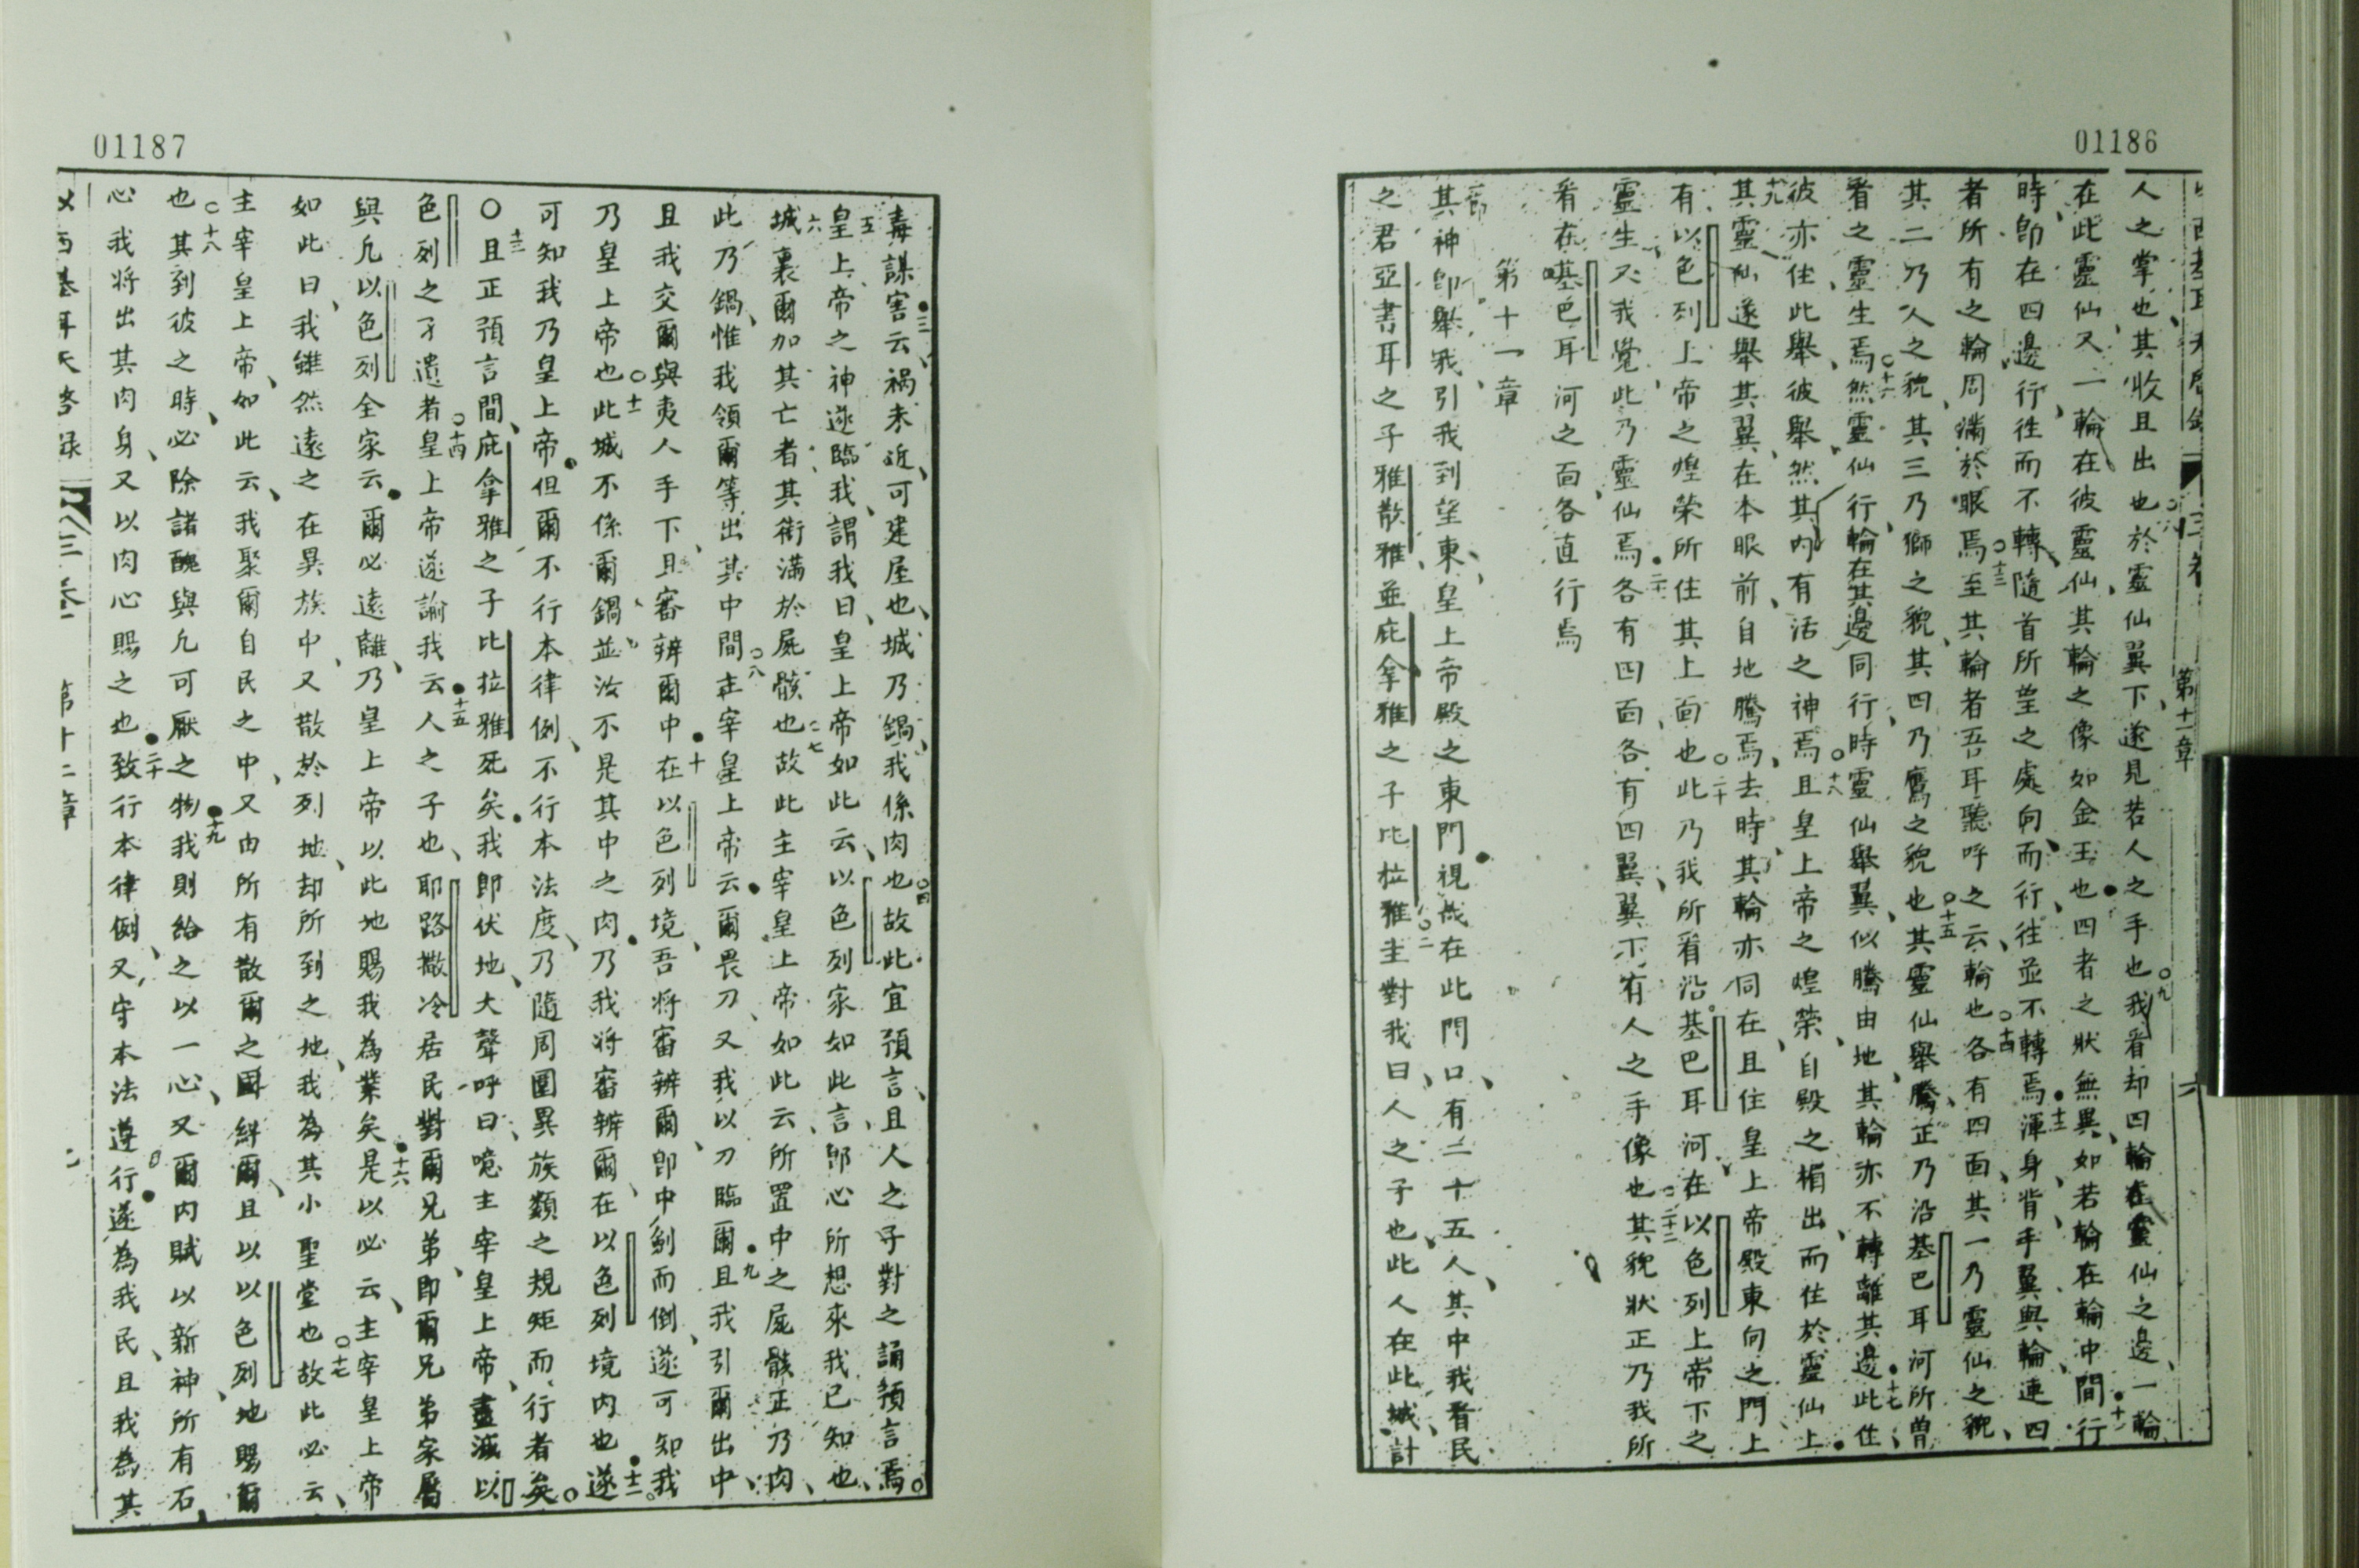 01186
第十一章
人之掌也其收且出也於靈仙翼下遂見若人之手也我看却四輪在靈仙之邊一輪
在此靈仙又一輪在彼靈仙其輪之像如金玉也四者之狀無異如若輪在輪中間行
時即在四邊行徃而不轉隨首所望之處向而行往並不轉焉渾身背手翼與輪連四
者所有之輪周滿於眼焉至其輪者吾耳聽呼之云輪也各有四面其一乃靈仙之貌
其二乃人之貌其三乃獅之貌其四乃鷹之貌也其靈仙舉騰正乃沿基巴耳河所曾
看之靈生焉然靈仙行輪在其邊同行時靈仙舉翼似騰由地其輪亦不轉離其邊此住
彼亦住此舉彼舉然其內有活之神焉且皇上帝之煌榮自殿之楣出而住於靈仙上
其靈仙遂舉其翼在本眼前自地騰焉去時其輪亦同在且住皇上帝殿東向之門上
有以色列上帝之煌榮所住其上面也此乃我所看沿基巴耳河在以色列上帝下之
靈生又我覺此乃靈仙焉各有四面各有四翼翼下有人之手像也其貌狀正乃我所
看在基巴耳河之面各直行焉
第十一章
其神即舉我引我到望東皇上帝殿之東門視哉在此門口有二十五人其中我看民
之君亞書耳之子雅散雅並庇拿雅之子比拉雅主對我曰人之子也此人在此城計
01187
毒謀害云禍未近可建屋也城乃鍋我係肉也故此宜預言且人之子對之誦預言焉
皇上帝之神遂臨我謂我曰皇上帝如此云以色列家如此言即心所想來我已知也
城裏爾加其亡者其街滿於屍骸也故此主宰皇上帝如此云所置中之屍骸正乃肉
此乃鍋惟我領爾等出其中間主宰皇上帝云爾畏刀又我以刀臨爾且我引爾出中
且我交爾與夷人手下且審辨爾中在以色列境吾將審辨爾即中劍而倒遂可知我
乃皇上帝也此城不係爾鍋並汝不是其中之肉乃我將審辨爾在以色列境內也遂
可知我乃皇上帝但爾不行本律例不行本法度乃隨周圍異族類之規矩而行者矣
且正預言間庇拿雅之子比拉雅死矣我即伏地大聲呼曰噫主宰皇上帝盡滅以
色列之孑遺者皇上帝遂諭我云人之子也耶路撒冷居民對爾兄弟即爾兄弟家屬
與凡以色列全家云爾必遠離乃皇上帝以此地賜我為業矣是以必云主宰皇上帝
如此曰我雖然遠之在異族中又散於列地却所到之地我為其小聖堂也故此必云
主宰皇上帝如此云我聚爾自民之中又由所有散爾之國絆爾且以以色列地賜爾
也其到彼之時必除諸醜與凡可厭之物我則給之以一心又爾內賦以新神所有石
心我將出其肉身又以肉心賜之也致行本律例又守本法遵行遂為我民且我為其
三卷 第十一章